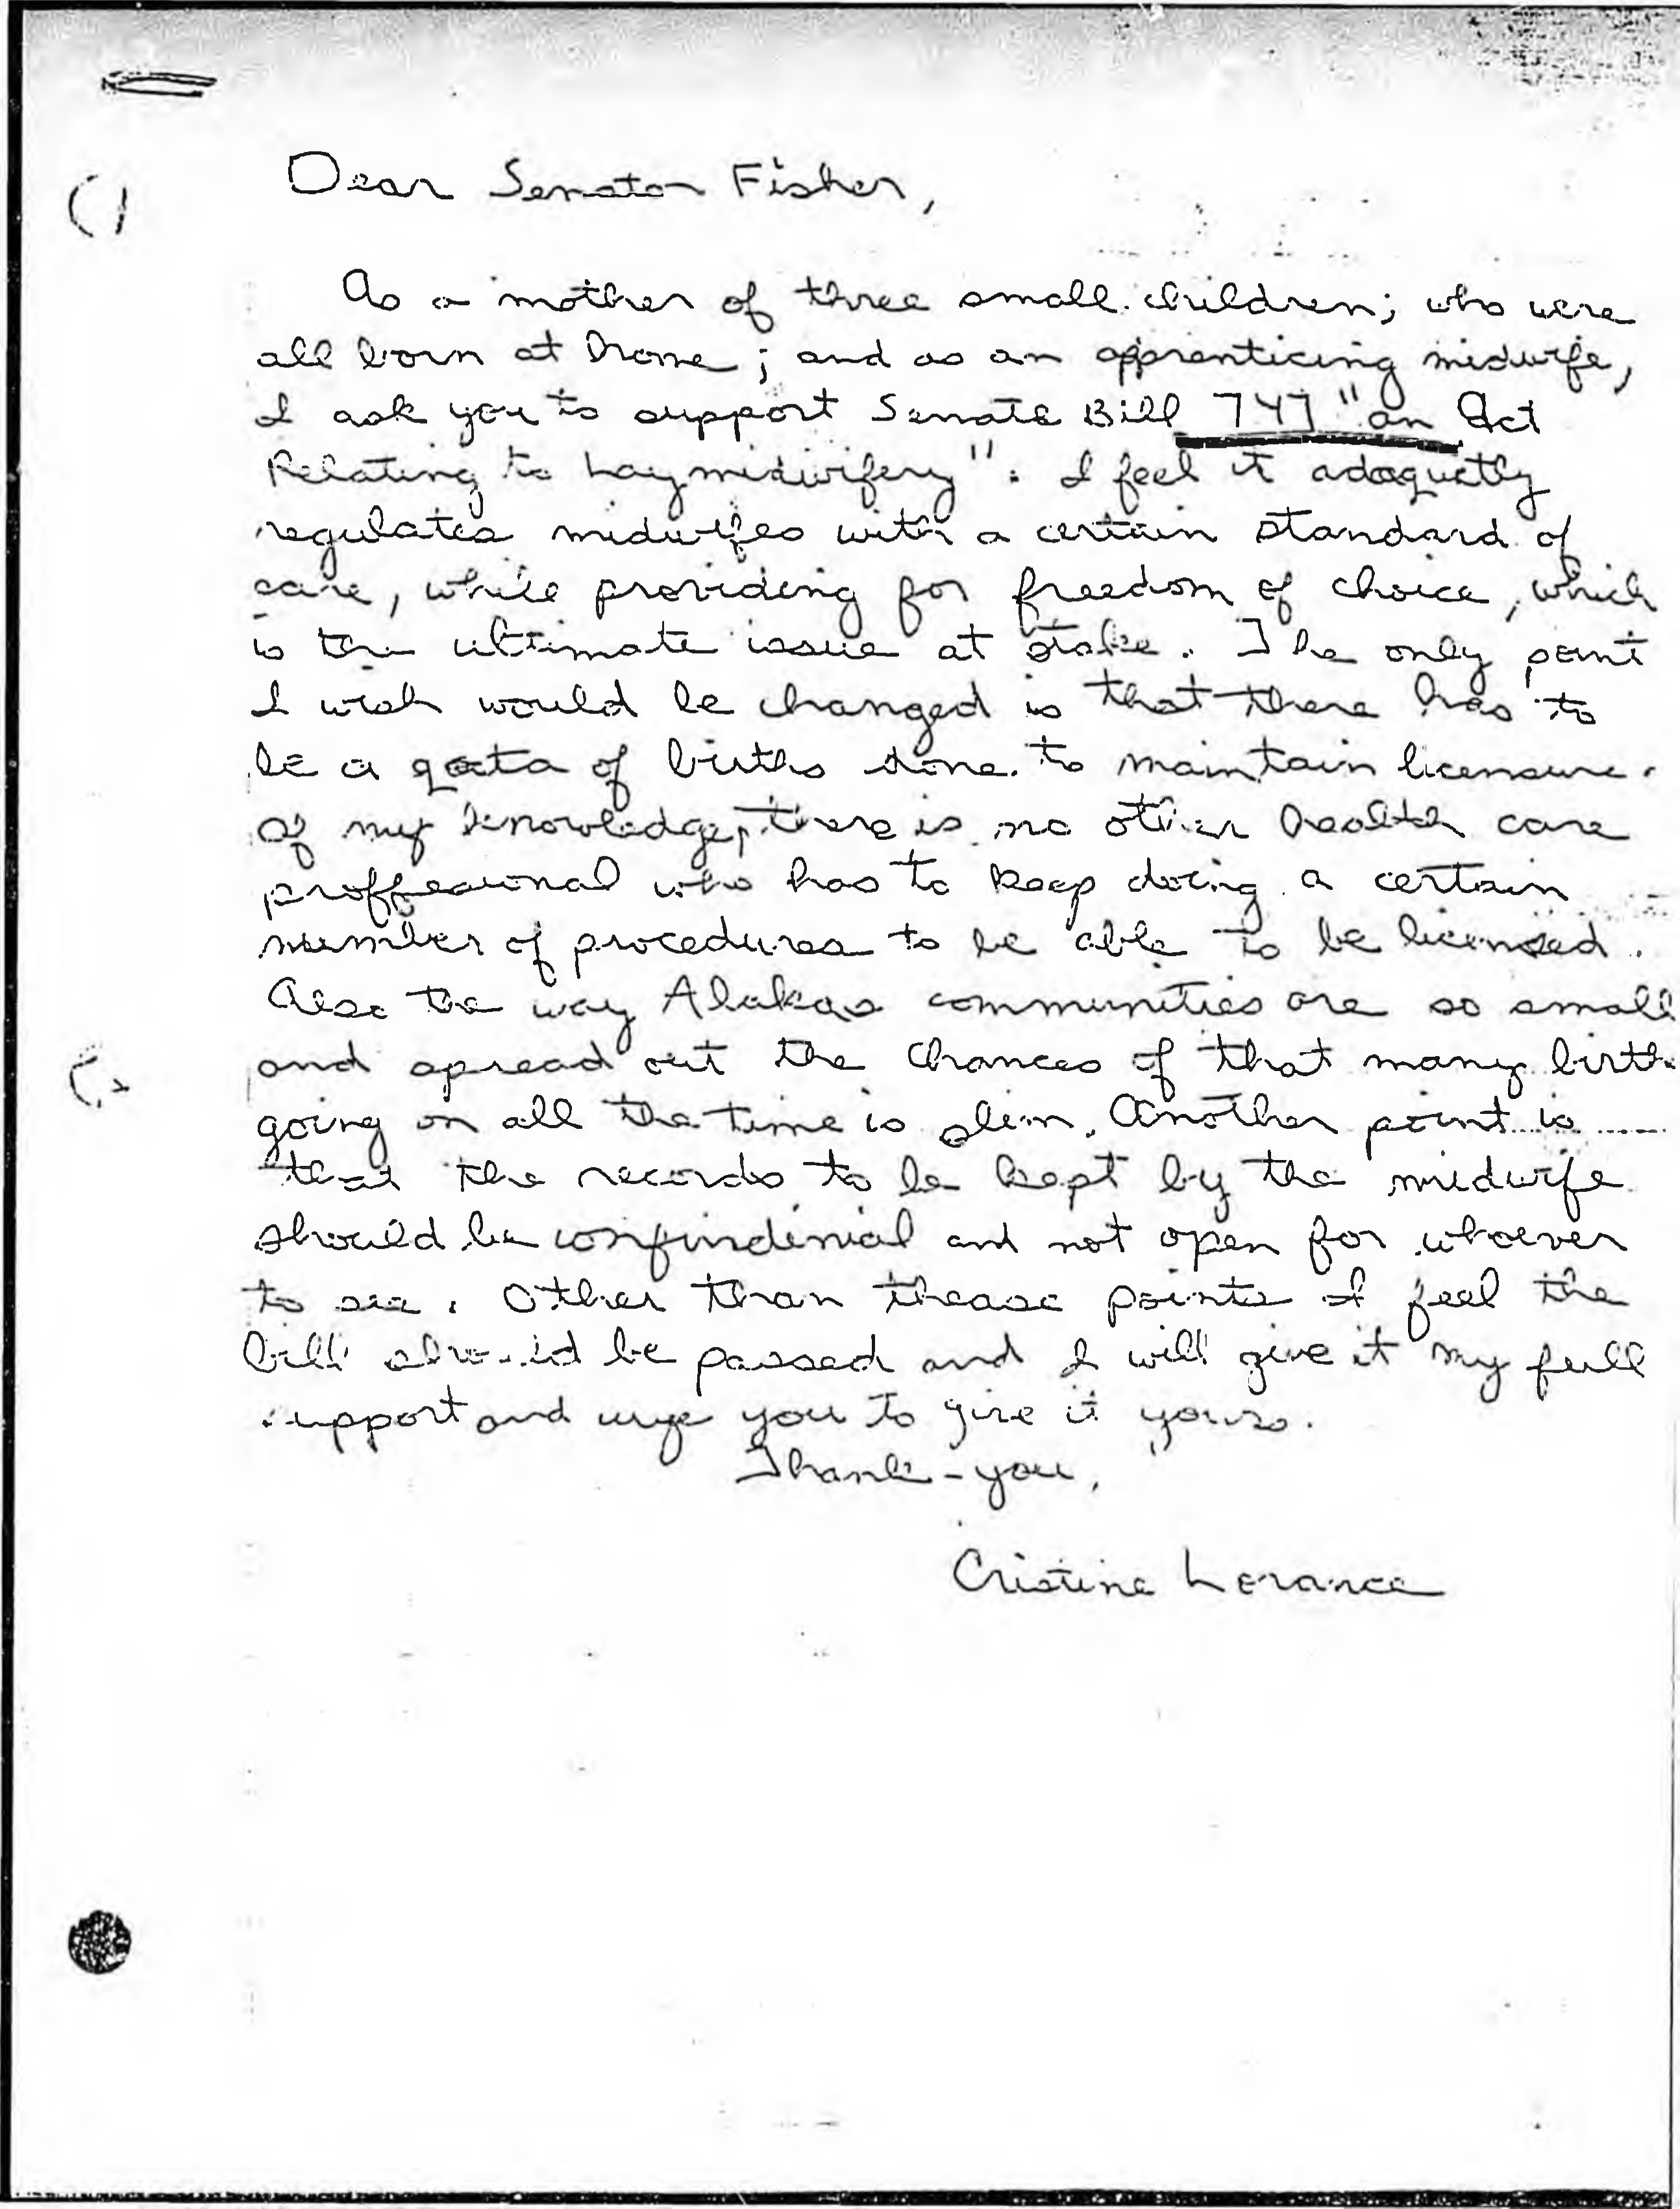 Dear Senator Fisher,
As a mother of three small children; who were
all born at home; and as an apprenticing midwife,
I ask you to support Senate Bill 747 "an Act
Relating to Lay midwifery". I feel it adaquetly
regulates midwifes with a certain standard of
care, while providing for freedom of choice, which
is the ultimate issue at stake. The only point
I wish would be changed is that there has to
be a qota of births done to maintain licensure.
Of my knowledge, there is no other health care
proffessional who has to keep doing a certain
number of procedures to be able to be licensed.
Also the way Alakas communities are so small
and spread out the chances of that many birth
going on all the time is slim. Another point is
that the records to be kept by the midwife
should be confindenial and not open for whoever
to see. Other than thease points I feel the
bill should be passed and I will give it my full
support and urge you to give it yours.
Thank-you,
Cristine Lerance